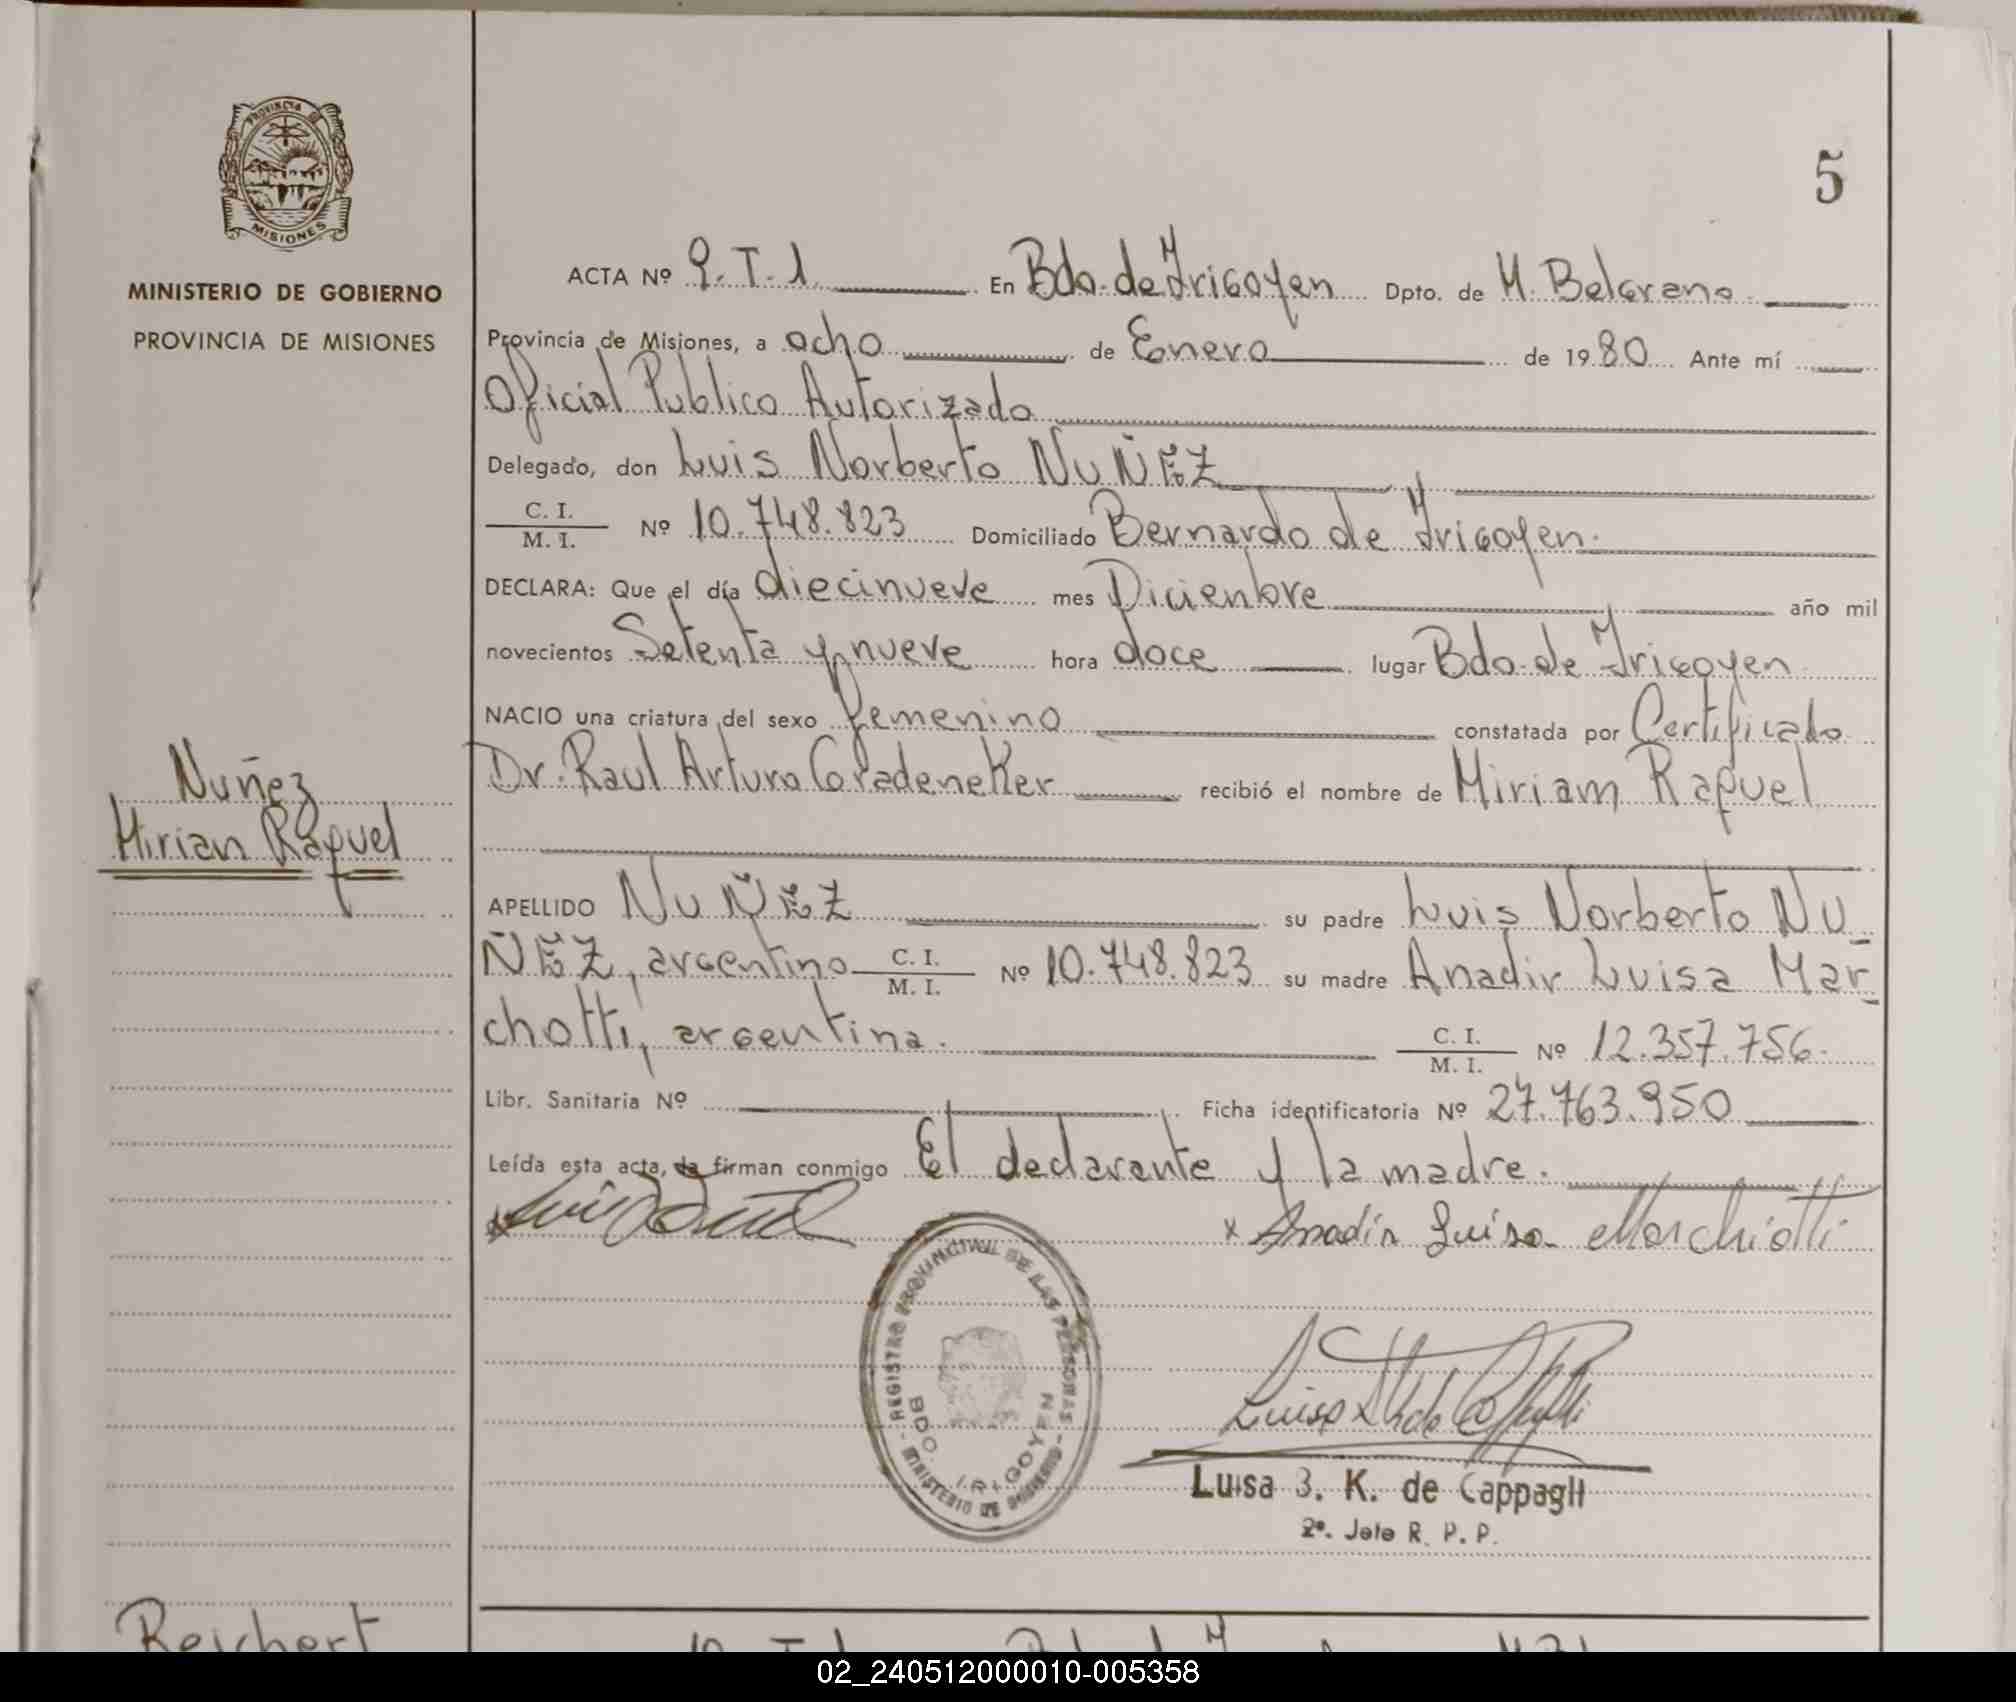 PROVINCIA DE
MISIONES
MINISTERIO DE GOBIERNO
PROVINCIA DE MISIONES
5
ACTA Nº 9.T.1. En Bdo. de Irigoyen Dpto. de M. Belgrano.
Provincia de Misiones, a ocho de Enero de 1980 Ante mí
Oficial Publico Autorizado
Delegado, don Luis Norberto NUÑEZ
C. I. / M. I. Nº 10.748.823 Domiciliado Bernardo de Irigoyen.
DECLARA: Que el día diecinueve mes Dicienbre año mil
novecientos Setenta y nueve hora doce lugar Bdo. de Irigoyen
NACIO una criatura del sexo femenino constatada por Certificado
Dr. Raul Arturo Gradeneker recibió el nombre de Miriam Raquel
Nuñez
Mirian Raquel
APELLIDO NUÑEZ su padre Luis Norberto NU_
ÑEZ, argentino C. I. / M. I. Nº 10.748.823 su madre Anadir Luisa Mar_
chotti, argentina. C. I. / M. I. Nº 12.357.756.
Libr. Sanitaria Nº Ficha identificatoria Nº 27.763.950
Leída esta acta, la firman conmigo El declarante y la madre.
x Anadir Luisa Marchiotti
REGISTRO PROVINCIAL DE LAS PERSONAS
BDO. IRIGOYEN
MINISTERIO DE GOBIERNO
Luisa B. K. de Cappagli
2º. Jefe R. P. P.
Reichert
02_240512000010-005358